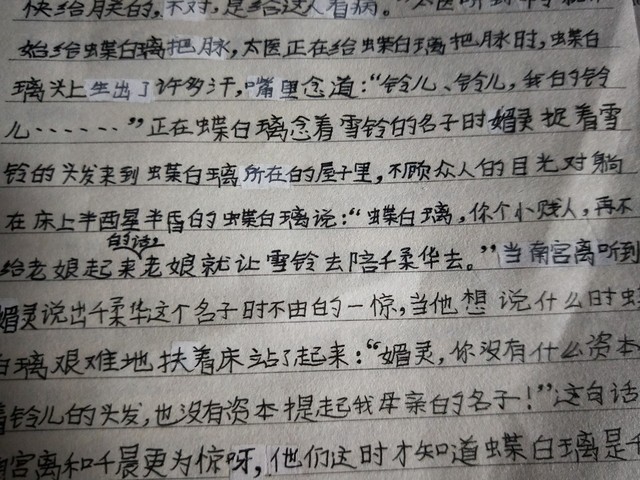 快给月柔的,不对,是给这人看病。"太医听到
始给蝶白璃把脉,太医正在给蝶白璃把脉时,蝶白
璃头上生出了许多汗,嘴里念道:"铃儿、铃儿,我的铃
儿······"正在蝶白璃念着雪铃的名子时媚灵捉着雪
铃的头发来到蝶白璃所在的屋子里,不顾众人的目光对躺
在床上半西星半昏的蝶白璃说:"蝶白璃,你个小贱人,再不
给老娘起来的话,老娘就让雪铃去陪千柔华去。"当南宫离听到
媚灵说出千柔华这个名子时不由的一惊,当他想说什么时
白璃艰难地扶着床站了起来:"媚灵,你没有什么资本
铃儿的头发,也没有资本提起我母亲的名子!"这句话
宫离和千晨更为惊呀,他们这时才知道蝶白璃是